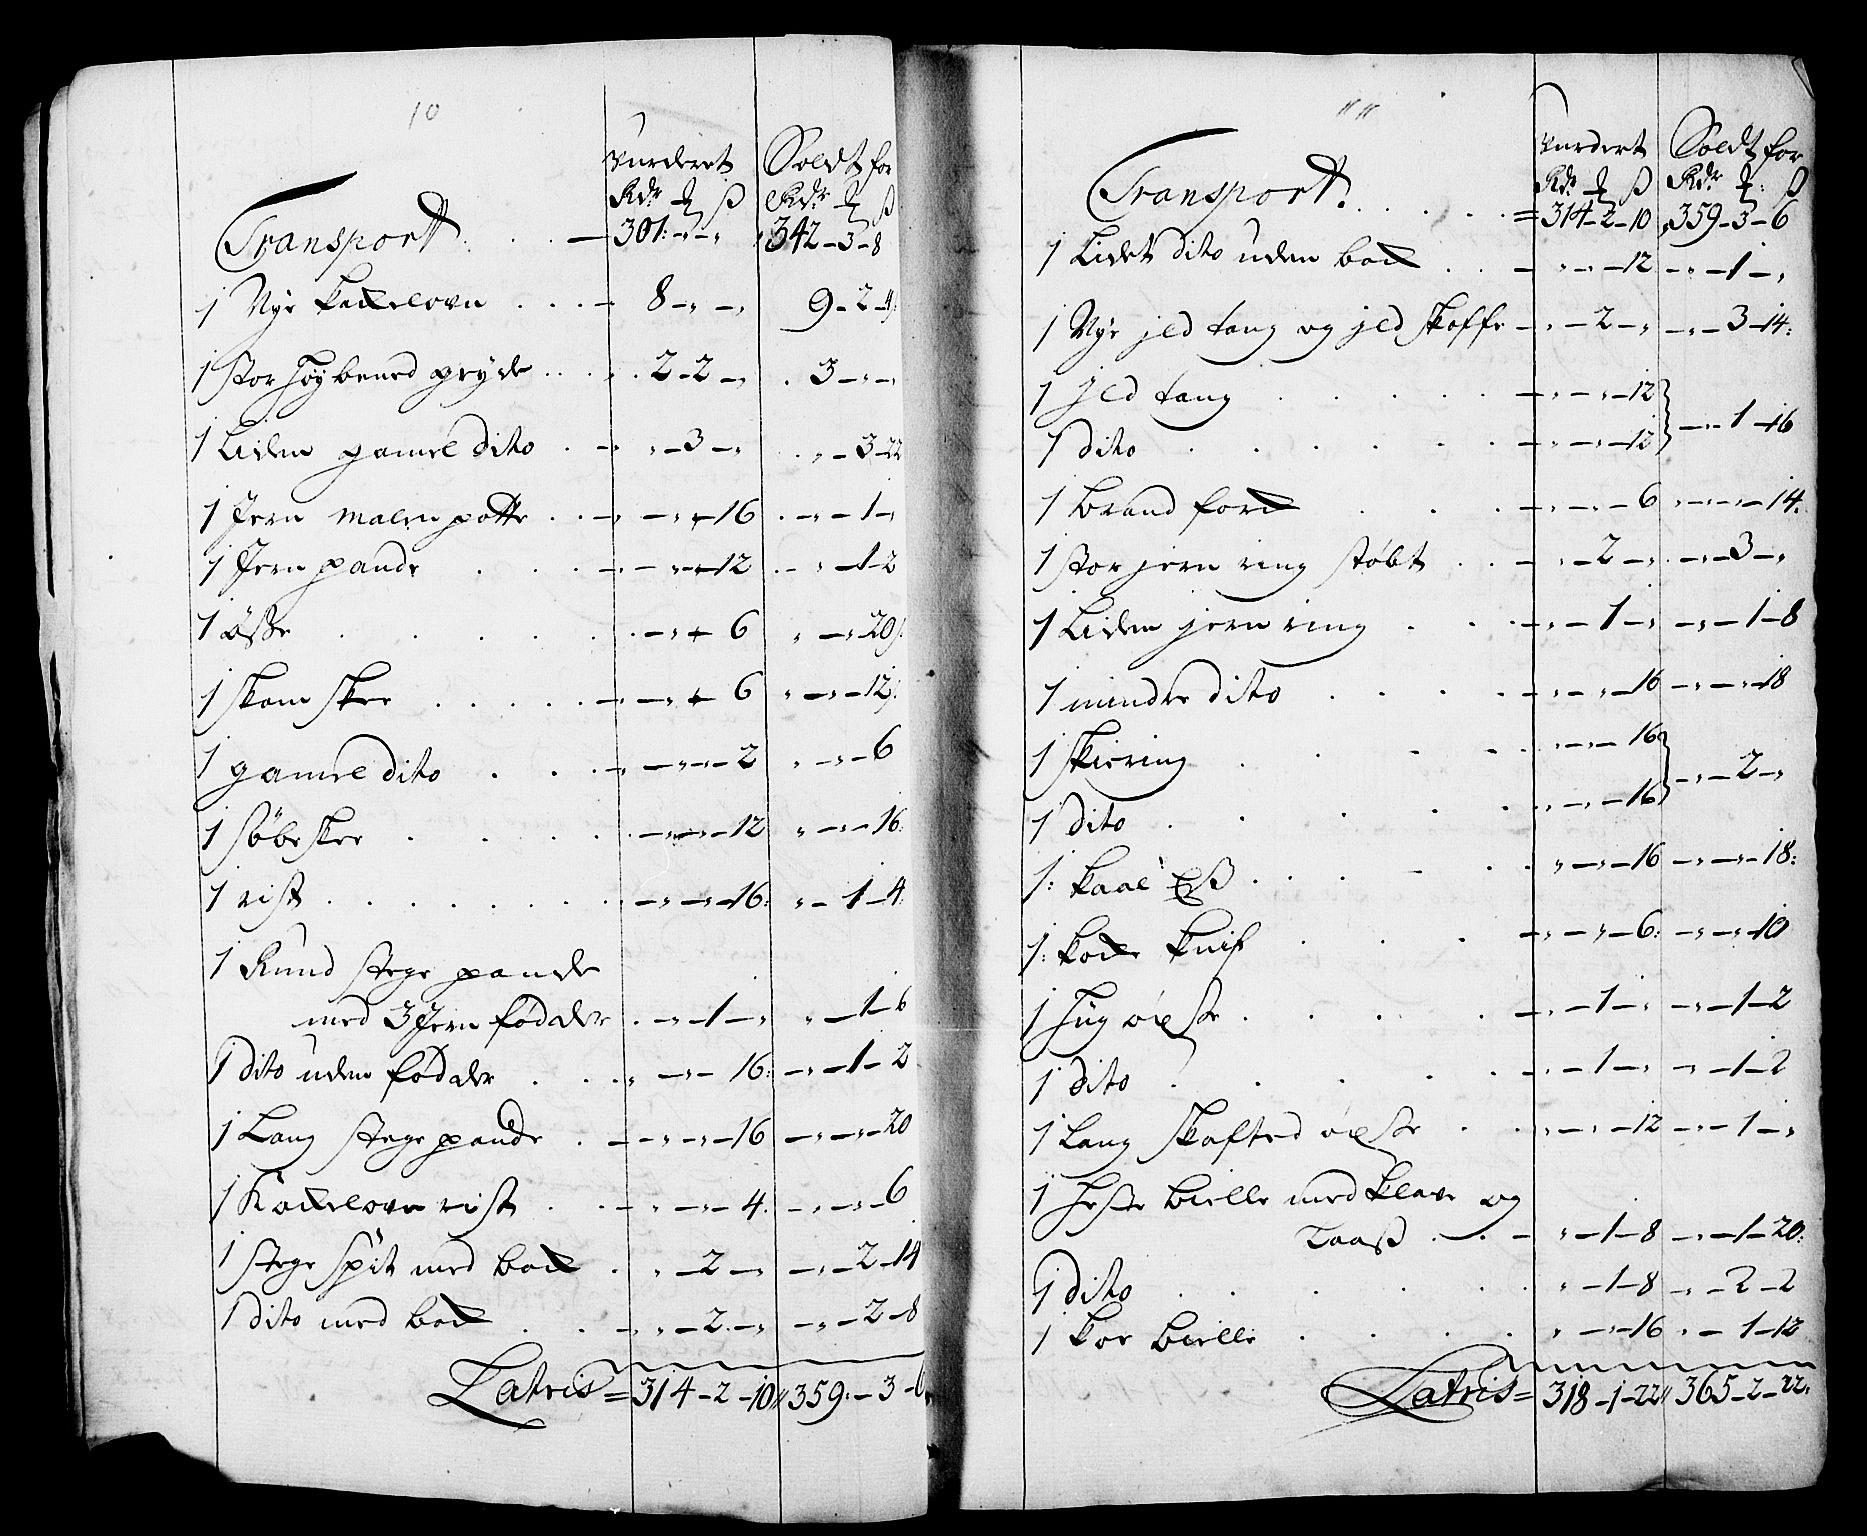 10
Vurderet Soldt for
Rdr ß Rdr ß
Transport . . . — 301: „ — „ 342 — 3 — 8
1 Nye kackelovn . . . — 8 — „ — „ 9 — 2 — 4
1 stor høybened gryde . . . 2 — 2 — „ . 3 — „ — „
1 Liden gamel dito . — „ — 3 — „ „ — 3 — 22
1 Jern malm potte . . — „ — „ — 16 „ — 1 — „
1 Jern pande . . . — „ — „ — 12 „ — 1 — 2
1 øsse . . . . . — „ — 6 „ — „ — 20
1 skom skee . . . . . — „ — „ — 6 „ — „ — 12
1 gamel dito . . . — „ — „ — 2 „ — „ — 6
1 søbeskee . . . . — „ — „ — 12 „ — „ — 16
1 rist . . . . . . . — „ — „ — 16: „ — 1 — 4
1 Rund stege pande
med 3 Jern fødder . — „ — 1 — „ „ — 1 — 6
1 dito uden fødder . . . „ — „ — 16: — „ — 1 — 2
1 Lang stege pande . — „ — „ — 16 — „ — „ — 20
1 Kackelovn rist . . — „ — „ — 4. — „ — „ — 6
1 stege spit med back . „ — 2 — „ — „ — 2 — 14
1 dito med back . . — „ — 2 — „ — „ — 2 — 8
Latris = 314 — 2 — 10 „ 359: — 3 — 6
11
Vurdert Soldt for
Rdr ß Rdr ß
Transport . . . . . = 314 — 2 — 10 „ 359 — 3 — 6
1 Lidet dito uden back . . — „ — „ — 12 — „ — 1 — „
1 Nye jld tang og jld skoffe — „ — 2 — „ — „ — 3 — 14:
1 Jld tang . . . . . — „ — „ — 12
— „ — 1 — 16
1 dito . . . . . — „ — „ — 12
1 brand forck . . . — „ — „ — 6 „ — „ — 14.
1 stor jern ring støbt . . — „ — 2 — „ . — „ — 3 — „
1 Liden jern ring . . . — „ — 1 — „ — „ — 1 — 8
1 mindre dito . . . . — „ — „ — 16 — „ — „ — 18
1 skiering . . . . „ — „ — 16
— „ — 2 — „
1 dito . . . . . „ — „ — 16
1: kaal . . . . . . „ — „ — 16 — „ — „ — 18:
1: kocke knif . . . — „ — „ — 6: — „ — „ — 10
1 Hug øxste . . . . — „ — 1 — „ — „ — 1 — 2
1 dito . . . . . — „ — 1 — „ — „ — 1 — 2
1 Lang skafted øxste . . „ — „ — 12 — „ — 1 — „
1 Heste bielle med klave og
Taaß . . — „ — 1 — 8 — „ — 1 — 20:
1 dito . . . . . . „ — 1 — 8 — „ — 2 — 2
1 koe bielle . . . . „ — „ — 16 „ — 1 — 12
Latris = 318 — 1 — 22 „ 365 — 2 — 22.